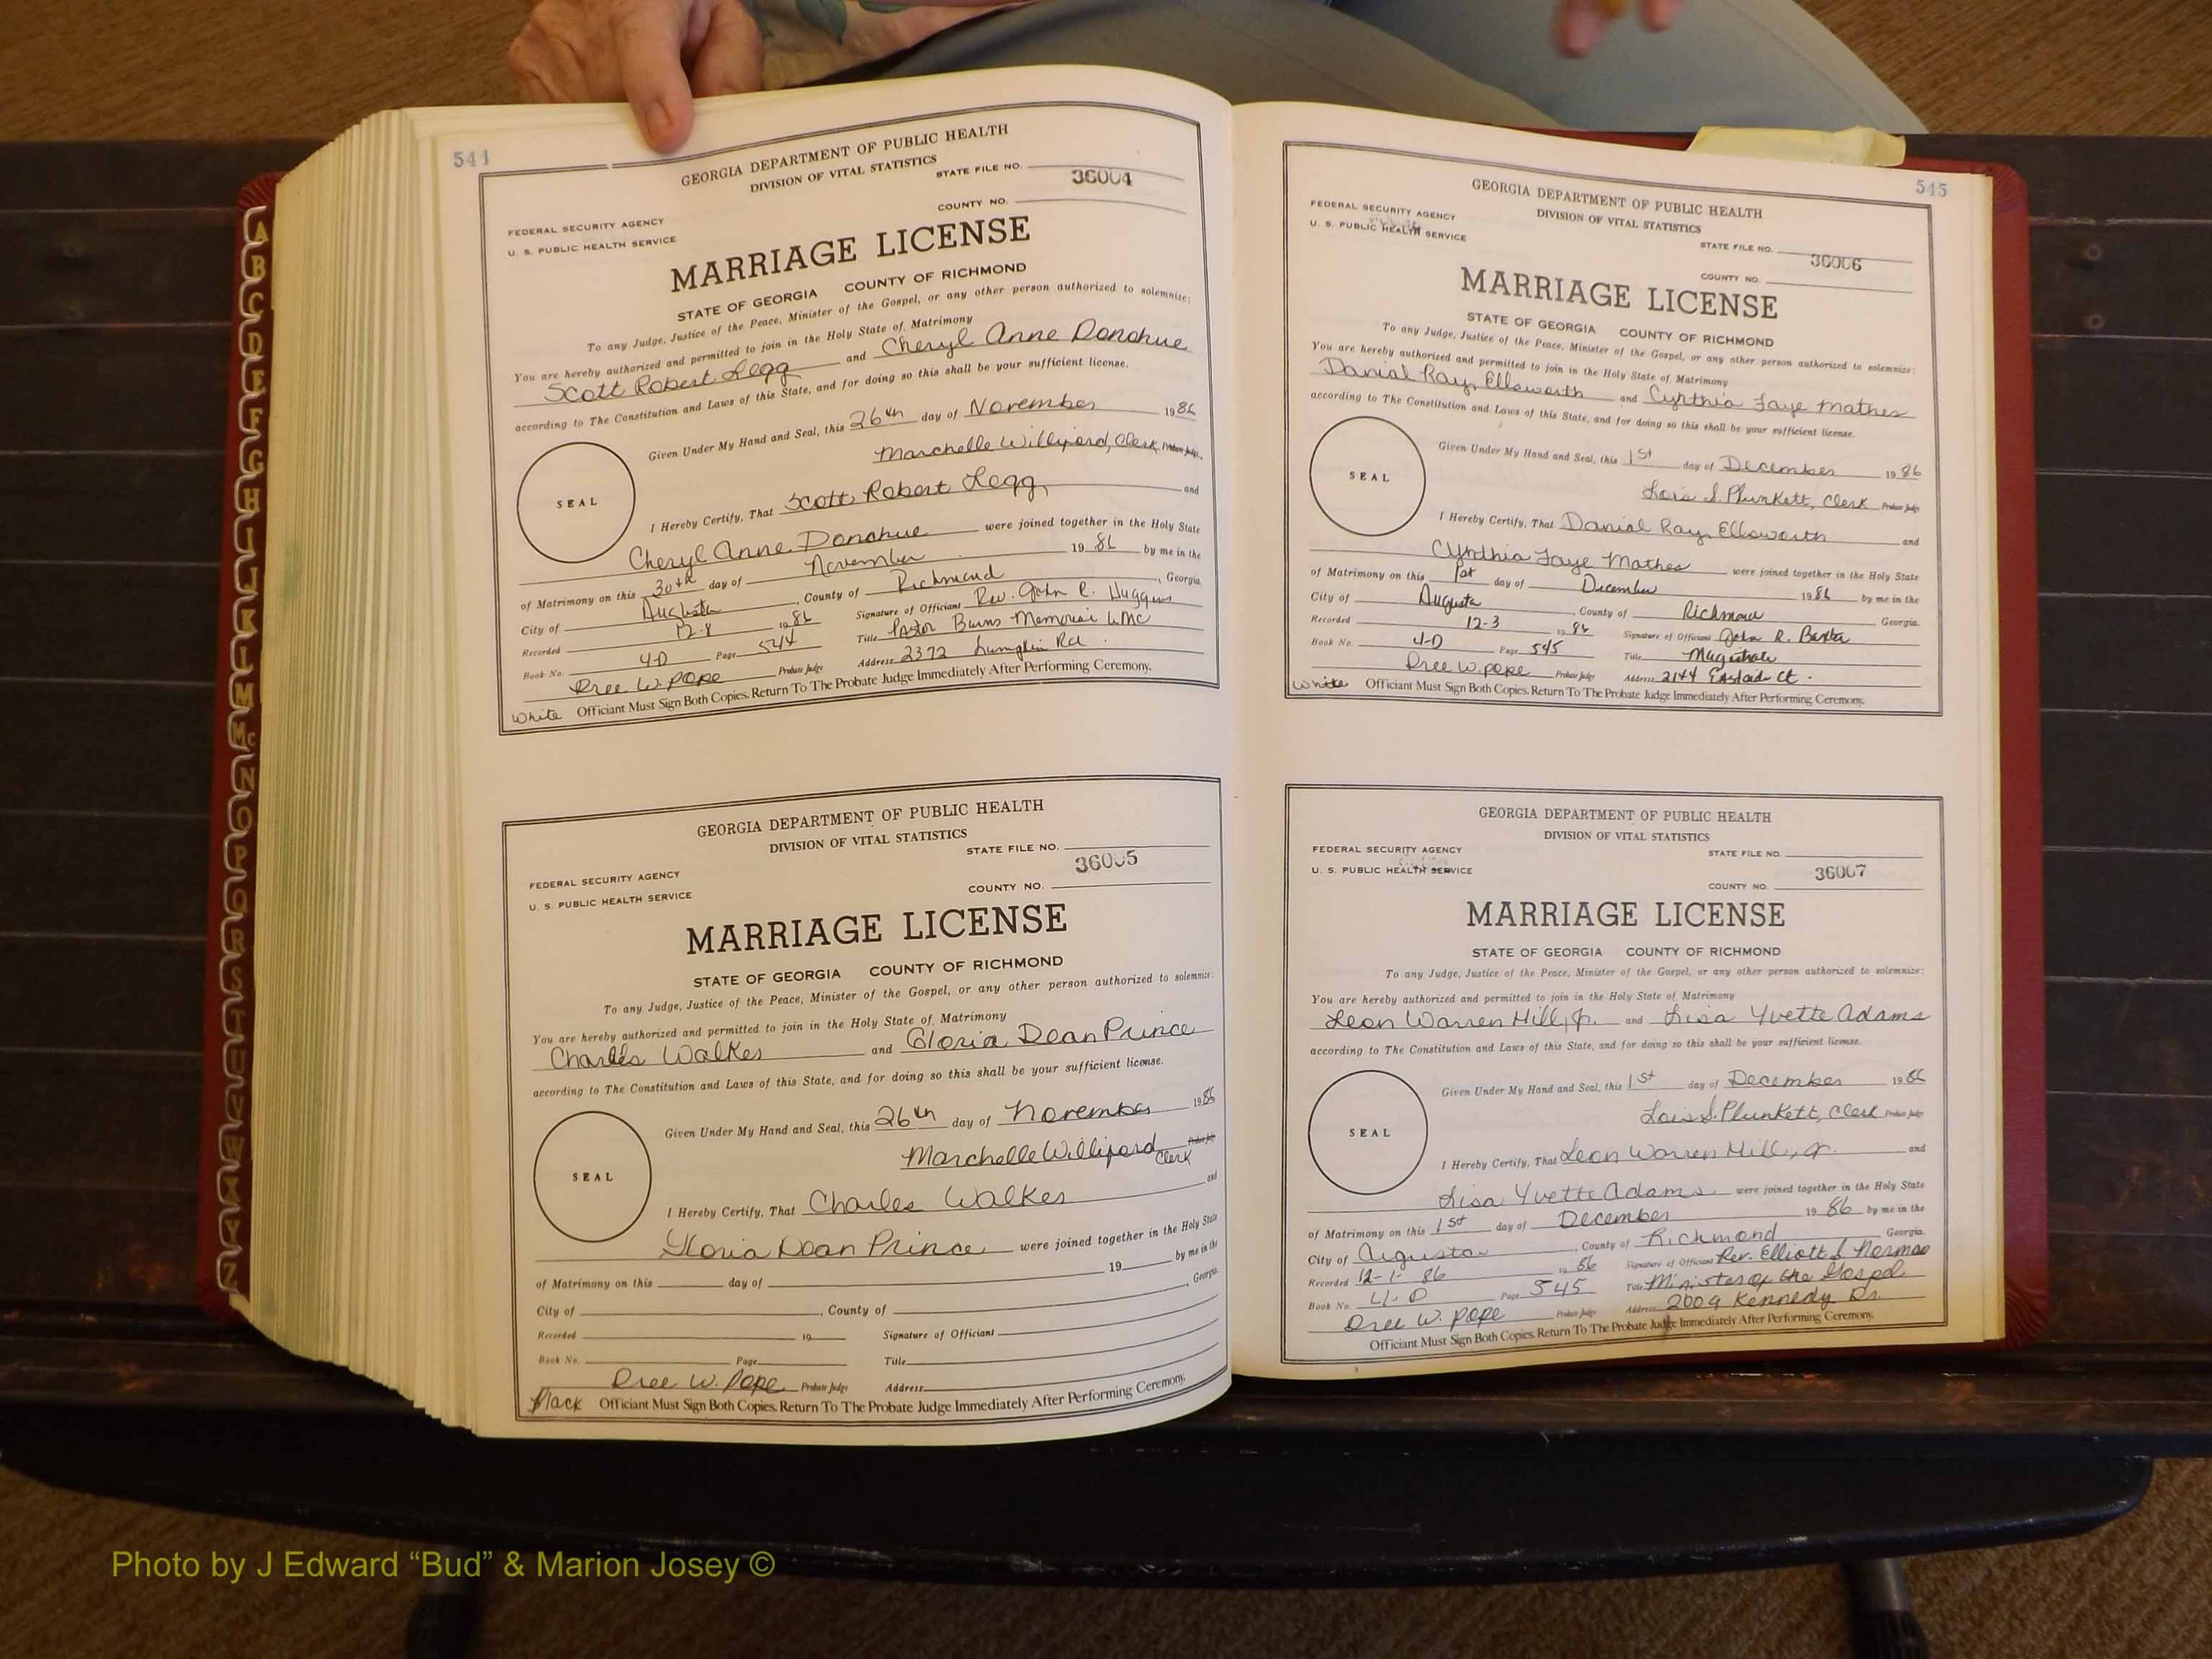 544
GEORGIA DEPARTMENT OF PUBLIC HEALTH
DIVISION OF VITAL STATISTICS
STATE FILE NO.
36004
COUNTY NO.
FEDERAL SECURITY AGENCY
U. S. PUBLIC HEALTH SERVICE
MARRIAGE LICENSE
STATE OF GEORGIA COUNTY OF RICHMOND
To any Judge, Justice of the Peace, Minister of the Gospel, or any other person authorized to solemnize:
You are hereby authorized and permitted to join in the Holy State of Matrimony
Scott Robert Legg and Cheryl Anne Donohue
according to The Constitution and Laws of this State, and for doing so this shall be your sufficient license.
Given Under My Hand and Seal, this 26th day of November 1986
Marchelle Williford, Clerk Probate Judge
SEAL
I Hereby Certify, That Scott Robert Legg and
Cheryl Anne Donohue were joined together in the Holy State
of Matrimony on this 30th day of November 1986 by me in the
City of Augusta, County of Richmond, Georgia.
Recorded 12-8 1986 Signature of Officiant Rev. John R. Huggins
Book No. 4-D Page 544 Title Pastor Burns Memorial UMC
Dree W. Pope Probate Judge Address 2372 Lumpkin Rd.
White Officiant Must Sign Both Copies. Return To The Probate Judge Immediately After Performing Ceremony.
GEORGIA DEPARTMENT OF PUBLIC HEALTH
DIVISION OF VITAL STATISTICS
STATE FILE NO.
36005
FEDERAL SECURITY AGENCY
COUNTY NO.
U. S. PUBLIC HEALTH SERVICE
MARRIAGE LICENSE
STATE OF GEORGIA COUNTY OF RICHMOND
To any Judge, Justice of the Peace, Minister of the Gospel, or any other person authorized to solemnize:
You are hereby authorized and permitted to join in the Holy State of Matrimony
Charles Walker and Gloria Dean Prince
according to The Constitution and Laws of this State, and for doing so this shall be your sufficient license.
Given Under My Hand and Seal, this 26th day of November 1986
Marchelle Williford Probate Judge
Clerk
SEAL
I Hereby Certify, That Charles Walker and
Gloria Dean Prince were joined together in the Holy State
of Matrimony on this day of 19 by me in the
City of , County of , Georgia.
Recorded 19 Signature of Officiant
Book No. Page Title
Dree W. Pope Probate Judge Address
Black Officiant Must Sign Both Copies. Return To The Probate Judge Immediately After Performing Ceremony.
545
GEORGIA DEPARTMENT OF PUBLIC HEALTH
DIVISION OF VITAL STATISTICS
FEDERAL SECURITY AGENCY
U. S. PUBLIC HEALTH SERVICE
STATE FILE NO.
36006
COUNTY NO.
MARRIAGE LICENSE
STATE OF GEORGIA COUNTY OF RICHMOND
To any Judge, Justice of the Peace, Minister of the Gospel, or any other person authorized to solemnize:
You are hereby authorized and permitted to join in the Holy State of Matrimony
Danial Ray Ellsworth and Cynthia Faye Mathes
according to The Constitution and Laws of this State, and for doing so this shall be your sufficient license.
Given Under My Hand and Seal, this 1st day of December 1986
Lois S. Plunkett, Clerk Probate Judge
SEAL
I Hereby Certify, That Danial Ray Ellsworth and
Cynthia Faye Mathes were joined together in the Holy State
of Matrimony on this 1st day of December 1986 by me in the
City of Augusta, County of Richmond Georgia.
Recorded 12-3 1986 Signature of Officiant John R. Baxter
Book No. 4-D Page 545 Title Magistrate
Dree W. Pope Probate Judge Address 2144 Eastside Ct.
White Officiant Must Sign Both Copies. Return To The Probate Judge Immediately After Performing Ceremony.
GEORGIA DEPARTMENT OF PUBLIC HEALTH
DIVISION OF VITAL STATISTICS
FEDERAL SECURITY AGENCY
STATE FILE NO.
U. S. PUBLIC HEALTH SERVICE
36007
COUNTY NO.
MARRIAGE LICENSE
STATE OF GEORGIA COUNTY OF RICHMOND
To any Judge, Justice of the Peace, Minister of the Gospel, or any other person authorized to solemnize:
You are hereby authorized and permitted to join in the Holy State of Matrimony
Leon Warren Hill, Jr. and Lisa Yvette Adams
according to The Constitution and Laws of this State, and for doing so this shall be your sufficient license.
Given Under My Hand and Seal, this 1st day of December 1986
Lois S. Plunkett, Clerk Probate Judge
SEAL
I Hereby Certify, That Leon Warren Hill, Jr. and
Lisa Yvette Adams were joined together in the Holy State
of Matrimony on this 1st day of December 1986 by me in the
City of Augusta, County of Richmond Georgia.
Recorded 12-1-86 1986 Signature of Officiant Rev. Elliott S. Norman
Book No. 4-D Page 545 Title Minister of the Gospel
Dree W. Pope Probate Judge Address 2009 Kennedy Dr.
Officiant Must Sign Both Copies. Return To The Probate Judge Immediately After Performing Ceremony.
Photo by J Edward “Bud” & Marion Josey ©